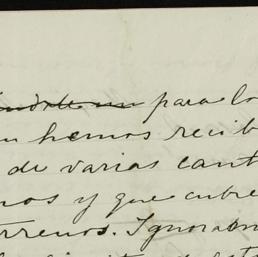 para lo
n hemos recib
de varias cant
nos y que cubre
rrenos. Ignoram